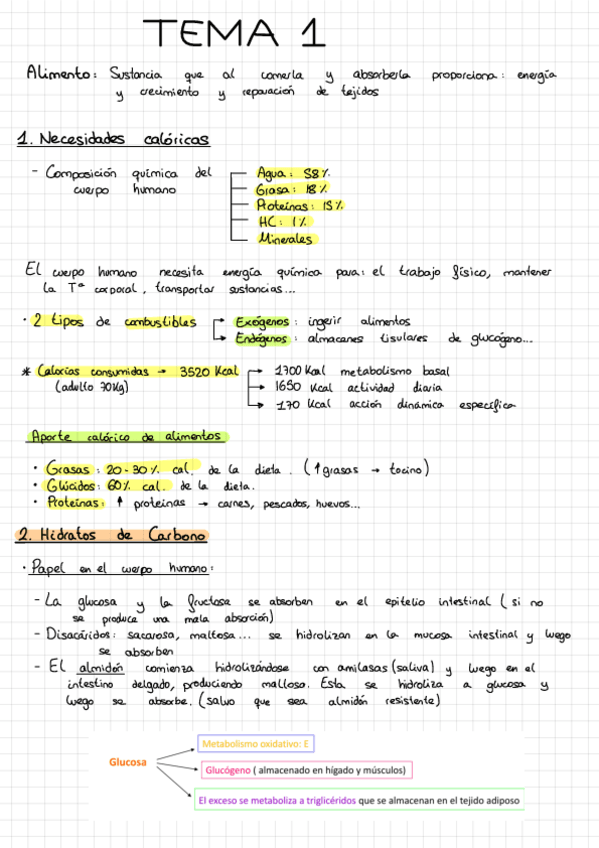 TEMA 1
Alimento: Sustancia que al comerla y absorberla proporciona: energía
y crecimiento y reparación de tejidos
1. Necesidades calóricas
- Composición química del
cuerpo humano
Agua: 58%
Grasa: 18%
Proteínas: 15%
HC: 1%
Minerales
El cuerpo humano necesita energía química para: el trabajo físico, mantener
la Tª corporal, transportar sustancias...
· 2 tipos de combustibles
Exógenos: ingerir alimentos
Endógenos: almacenes tisulares de glucógeno...
* Calorías consumidas → 3520 Kcal
(adulto 70Kg)
→ 1700 Kcal metabolismo basal
→ 1650 Kcal actividad diaria
→ 170 Kcal acción dinámica específica
Aporte calórico de alimentos
· Grasas: 20-30% cal. de la dieta. (↑grasas → tocino)
· Glúcidos: 60% cal. de la dieta.
· Proteínas: ↑ proteínas → carnes, pescados, huevos...
2. Hidratos de Carbono
· Papel en el cuerpo humano:
- La glucosa y la fructosa se absorben en el epitelio intestinal (si no
se produce una mala absorción)
- Disacáridos: sacarosa, maltosa... se hidrolizan en la mucosa intestinal y luego
se absorben
- El almidón comienza hidrolizándose con amilasas (saliva) y luego en el
intestino delgado, produciendo maltosa. Esta se hidroliza a glucosa y
luego se absorbe. (salvo que sea almidón resistente)
Glucosa
Metabolismo oxidativo: E
Glucógeno ( almacenado en hígado y músculos)
El exceso se metaboliza a triglicéridos que se almacenan en el tejido adiposo